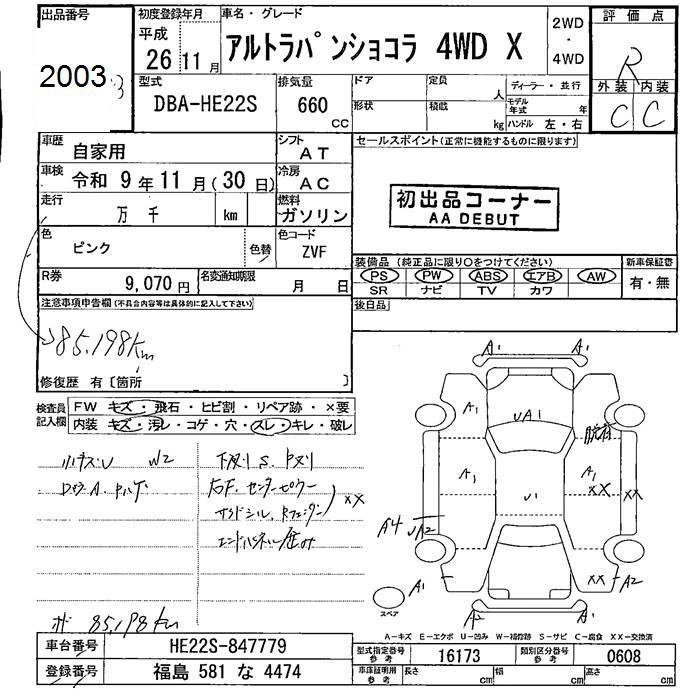 出品番号
2003
初度登録年月
平成
26 11月
車名・グレード
アルトラパンショコラ 4WD X
2WD
・
4WD
評価点
R
外装 内装
C C
型式
DBA-HE22S
排気量
660
CC
ドア
形状
定員
人
積載
kg
ディーラー・並行
モデル年式 年
ハンドル 左・右
車歴
自家用
シフト
AT
車検
令和 9年11月(30日)
冷房
AC
走行
万 千 km
燃料
ガソリン
色
ピンク
色替
色コード
ZVF
R券
9,070 円
名変通知期限
月 日
セールスポイント(正常に機能するものに限ります)
初出品コーナー
AA DEBUT
装備品(純正品に限り○をつけてください)
新車保証書
PS PW ABS エアB AW
SR ナビ TV カワ
有・無
後日品
注意事項申告欄(不具合内容等は具体的に記入して下さい)
85,198km
修復歴 有[箇所 ]
検査員
記入欄
FW キズ・飛石・ヒビ割・リペア跡・×要
内装 キズ・汚レ・コゲ・穴・スレ・キレ・破レ
小キズU W2
下廻りS
右F.センターピラー
サイドシル
XX
85,198km
A1 A1
A1
UA1
A1
A1
XX
XX
U1
A4 UA2
XX A2
A1
A2 A1
スペア
A-キズ E-エクボ U-凹み W-補修跡 S-サビ C-腐食 XX-交換済
車台番号
HE22S-847779
登録番号
福島 581 な 4474
型式指定番号
参考
16173
類別区分番号
参考
0608
車庫証明用
参考
長さ cm 幅 cm 高さ cm